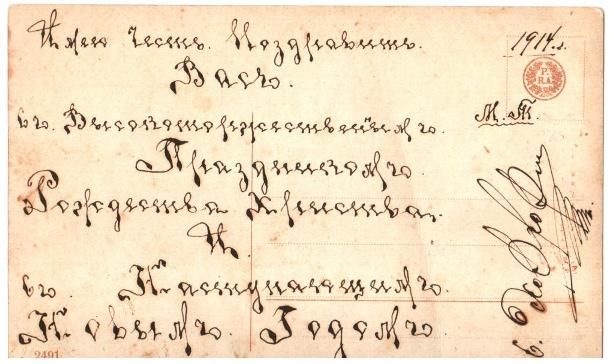 Имею Честь. Поздравить.
Васъ.
съ. Высокоторжественнымъ.
Праздникомъ.
Рождества Христова.
И.
съ. Наступающимъ.
Новымъ. Годомъ.
1914.г.
P.
R.A.
М.П.
2491